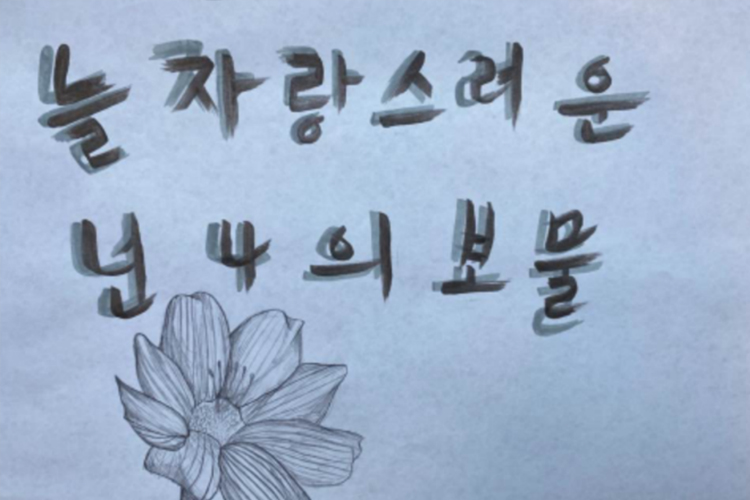 늘 자랑스러운
넌 나의 보물